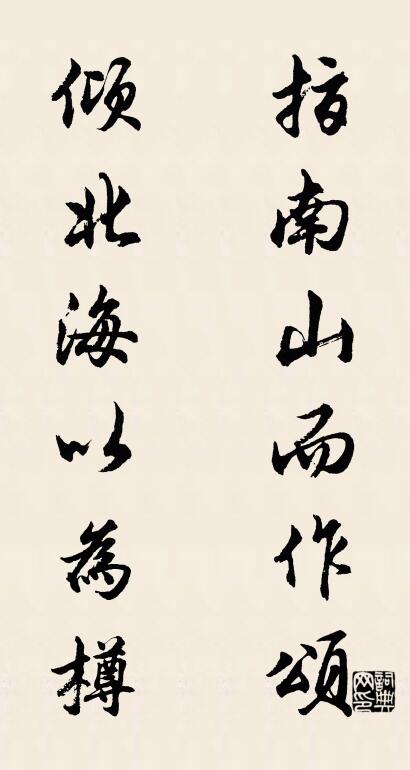 指南山而作頌
傾北海以為樽
詞典網印